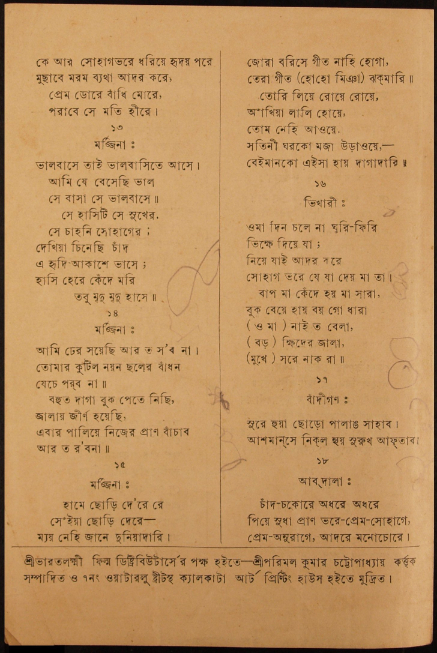 কে আর সোহাগভরে ধরিয়ে হৃদয় পরে
মুছাবে মরম ব্যথা আদর করে,
প্রেম ডোরে বাঁধি মোরে,
পরাবে সে মতি হীরে।
১৩
মর্জ্জিনা :
ভালবাসে তাই ভালবাসিতে আসে।
আমি যে বেসেছি ভাল
সে বাসা সে ভালবাসে॥
সে হাসিটি সে সুখের,
সে চাহনি সোহাগের ;
দেখিয়া চিনেছি চাঁদ
এ হৃদি-আকাশে ভাসে ;
হাসি হেরে কেঁদে মরি
তবু মৃদু মৃদু হাসে॥
১৪
মর্জ্জিনা :
আমি ঢের সয়েছি আর ত স'ব না।
তোমার কুটিল নয়ন ছলের বাঁধন
যেচে পরব না॥
বহুত দাগা বুক পেতে নিছি,
জালায় জীর্ণ হয়েছি,
এবার পালিয়ে নিজের প্রাণ বাঁচাব
আর ত র'বনা॥
১৫
মর্জ্জিনা :
হামে ছোড়ি দে'রে রে
সেঁইয়া ছোড়ি দেরে—
ম্যয় নেহি জানে দুনিয়াদারি।
জোরা বরিসে গীত নাহি হোগা,
তেরা গীত (হোহো মিঞা) ঝক্‌মারি॥
তোরি লিয়ে রোয়ে রোয়ে,
আঁখিয়া লালি হোয়ে,
তোম নেহি আওয়ে,
সতিনী ঘরকো মজা উড়াওয়ে,—
বেইমানকো এইসা হায় দাগাদারি॥
১৬
ভিখারী :
ওমা দিন চলে না ঘুরি-ফিরি
ভিক্ষে দিয়ে যা ;
নিয়ে যাই আদর করে
সোহাগ ভরে যে যা দেয় মা তা।
বাপ মা কেঁদে হয় মা সারা,
বুক বেয়ে হায় বয় গো ধারা
( ও মা ) নাই ত বেলা,
( বড় ) ক্ষিদের জালা,
(মুখে) সরে নাক রা॥
১৭
বাঁদীগণ :
সুরে হুয়া ছোড়ো পালাঙ সাহাব।
আশমান্‌সে নিক্‌ল হুয় সুরুখ আফ্‌তাব।
১৮
আবদালা :
চাঁদ-চকোরে অধরে অধরে
পিয়ে সুধা প্রাণ ভরে-প্রেম-সোহাগে,
প্রেম-অনুরাগে, আদরে মনোচোরে।
শ্রীভারতলক্ষ্মী ফিল্ম ডিষ্ট্রিবিউটার্সে'র পক্ষ হইতে—শ্রীপরিমল কুমার চট্টোপাধ্যায় কর্ত্তৃক
সম্পাদিত ও ৭নং ওয়াটারলু ষ্ট্রীটস্থ ক্যালকাটা আর্ট প্রিন্টিং হাউস হইতে মুদ্রিত।